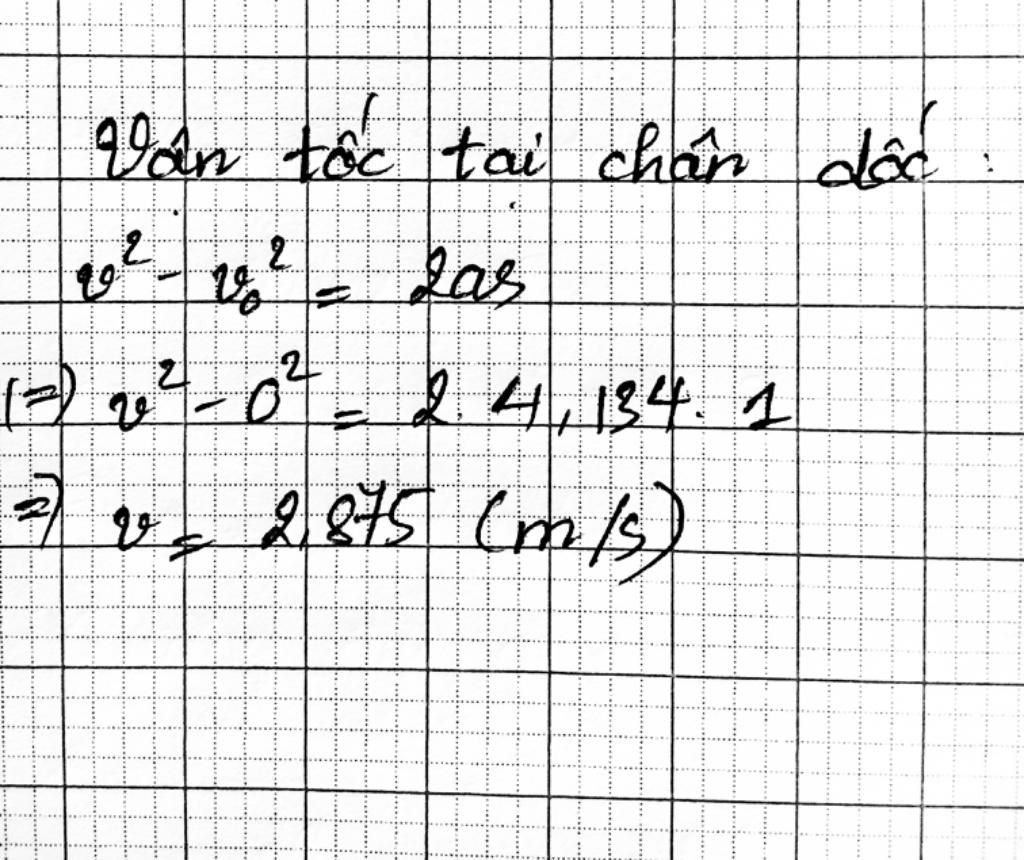 Vận tốc tại chân dốc :
v² - v₀² = 2as
(=) v² - 0² = 2. 4,134. 1
=) v = 2,875 (m/s)